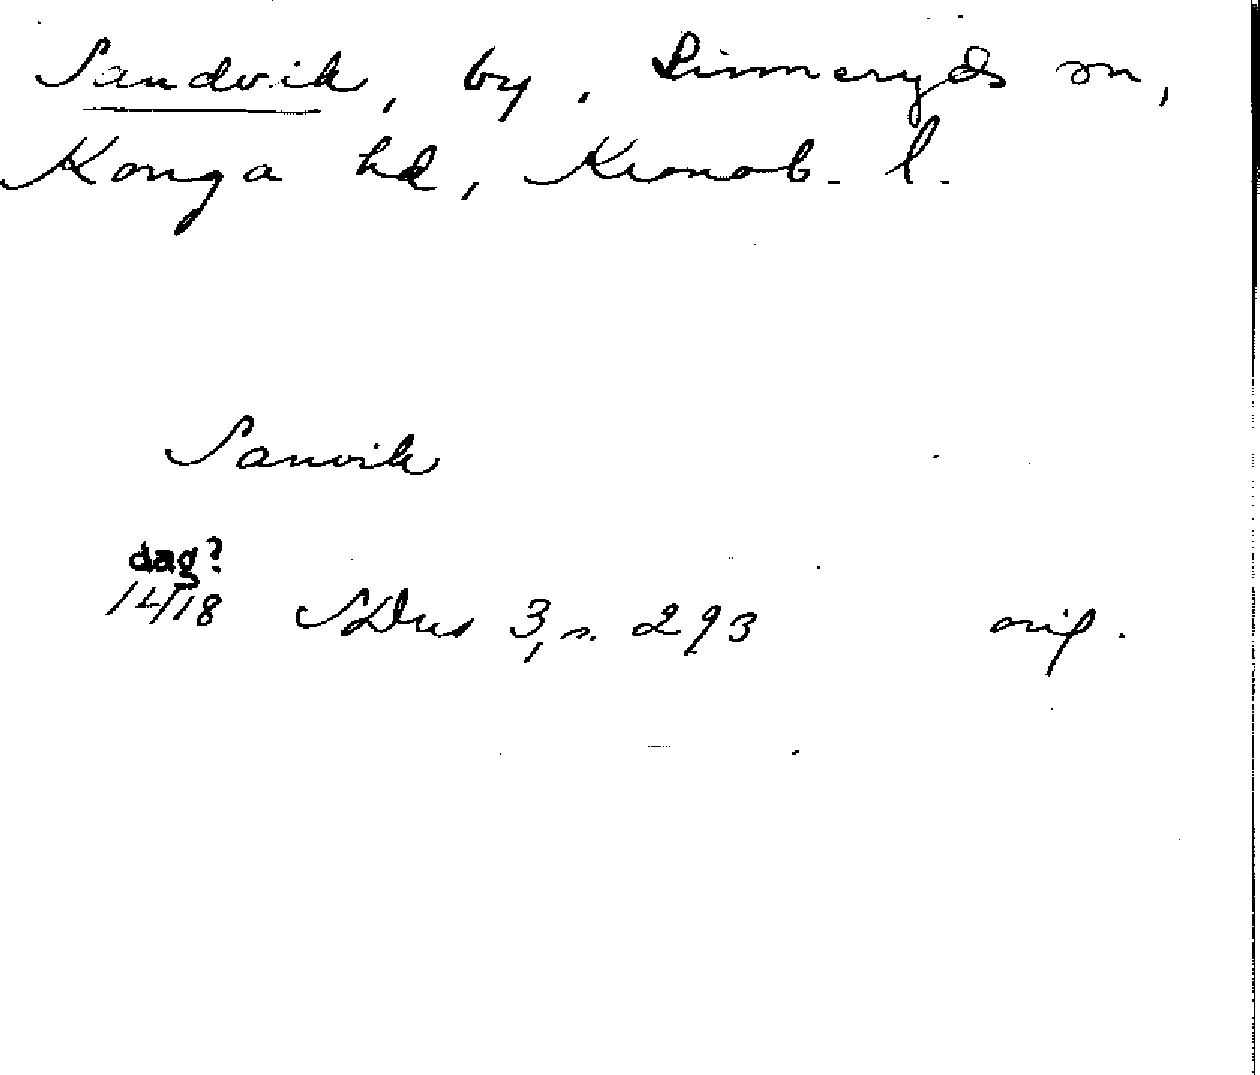 Sandvik, by, Linneryds sn,
Konga hd, Kronob. l.
Sanvik
dag?
1418 SDns 3, s. 293 orig.